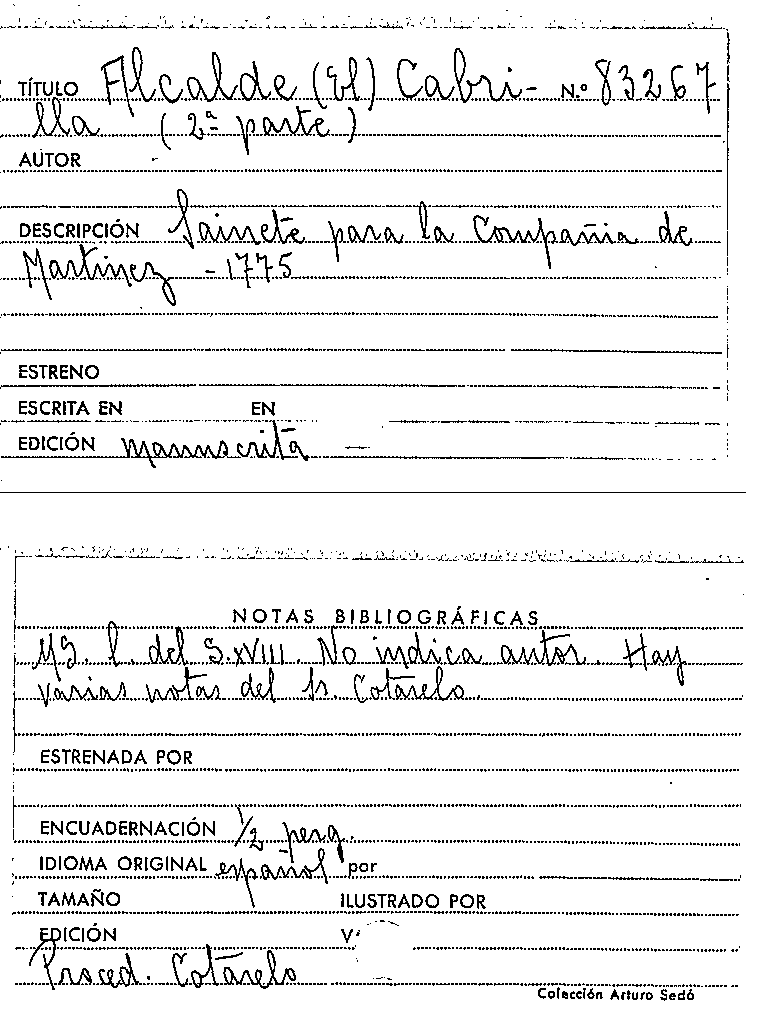 TÍTULO Alcalde (El) Cabri- N.º 83267
lla (2ª parte)
AUTOR
DESCRIPCIÓN Sainete para la Compañia de
Martinez - 1775
ESTRENO
ESCRITA EN EN
EDICIÓN manuscrita —
NOTAS BIBLIOGRÁFICAS
MS. l. del S. XVIII. No indica autor. Hay
varias notas del Sr. Cotarelo.
ESTRENADA POR
ENCUADERNACIÓN 1/2 perg.
IDIOMA ORIGINAL español por
TAMAÑO ILUSTRADO POR
EDICIÓN
Proced. Cotarelo
Colección Arturo Sedó